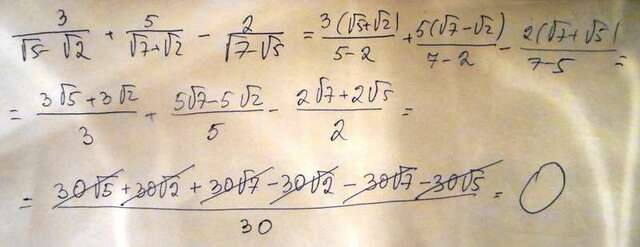 3/(√5-√2) + 5/(√7+√2) - 2/(√7-√5) = 3(√5+√2)/(5-2) + 5(√7-√2)/(7-2) - 2(√7+√5)/(7-5) =
= (3√5+3√2)/3 + (5√7-5√2)/5 - (2√7+2√5)/2 =
= (30√5+30√2+30√7-30√2-30√7-30√5)/30 = 0